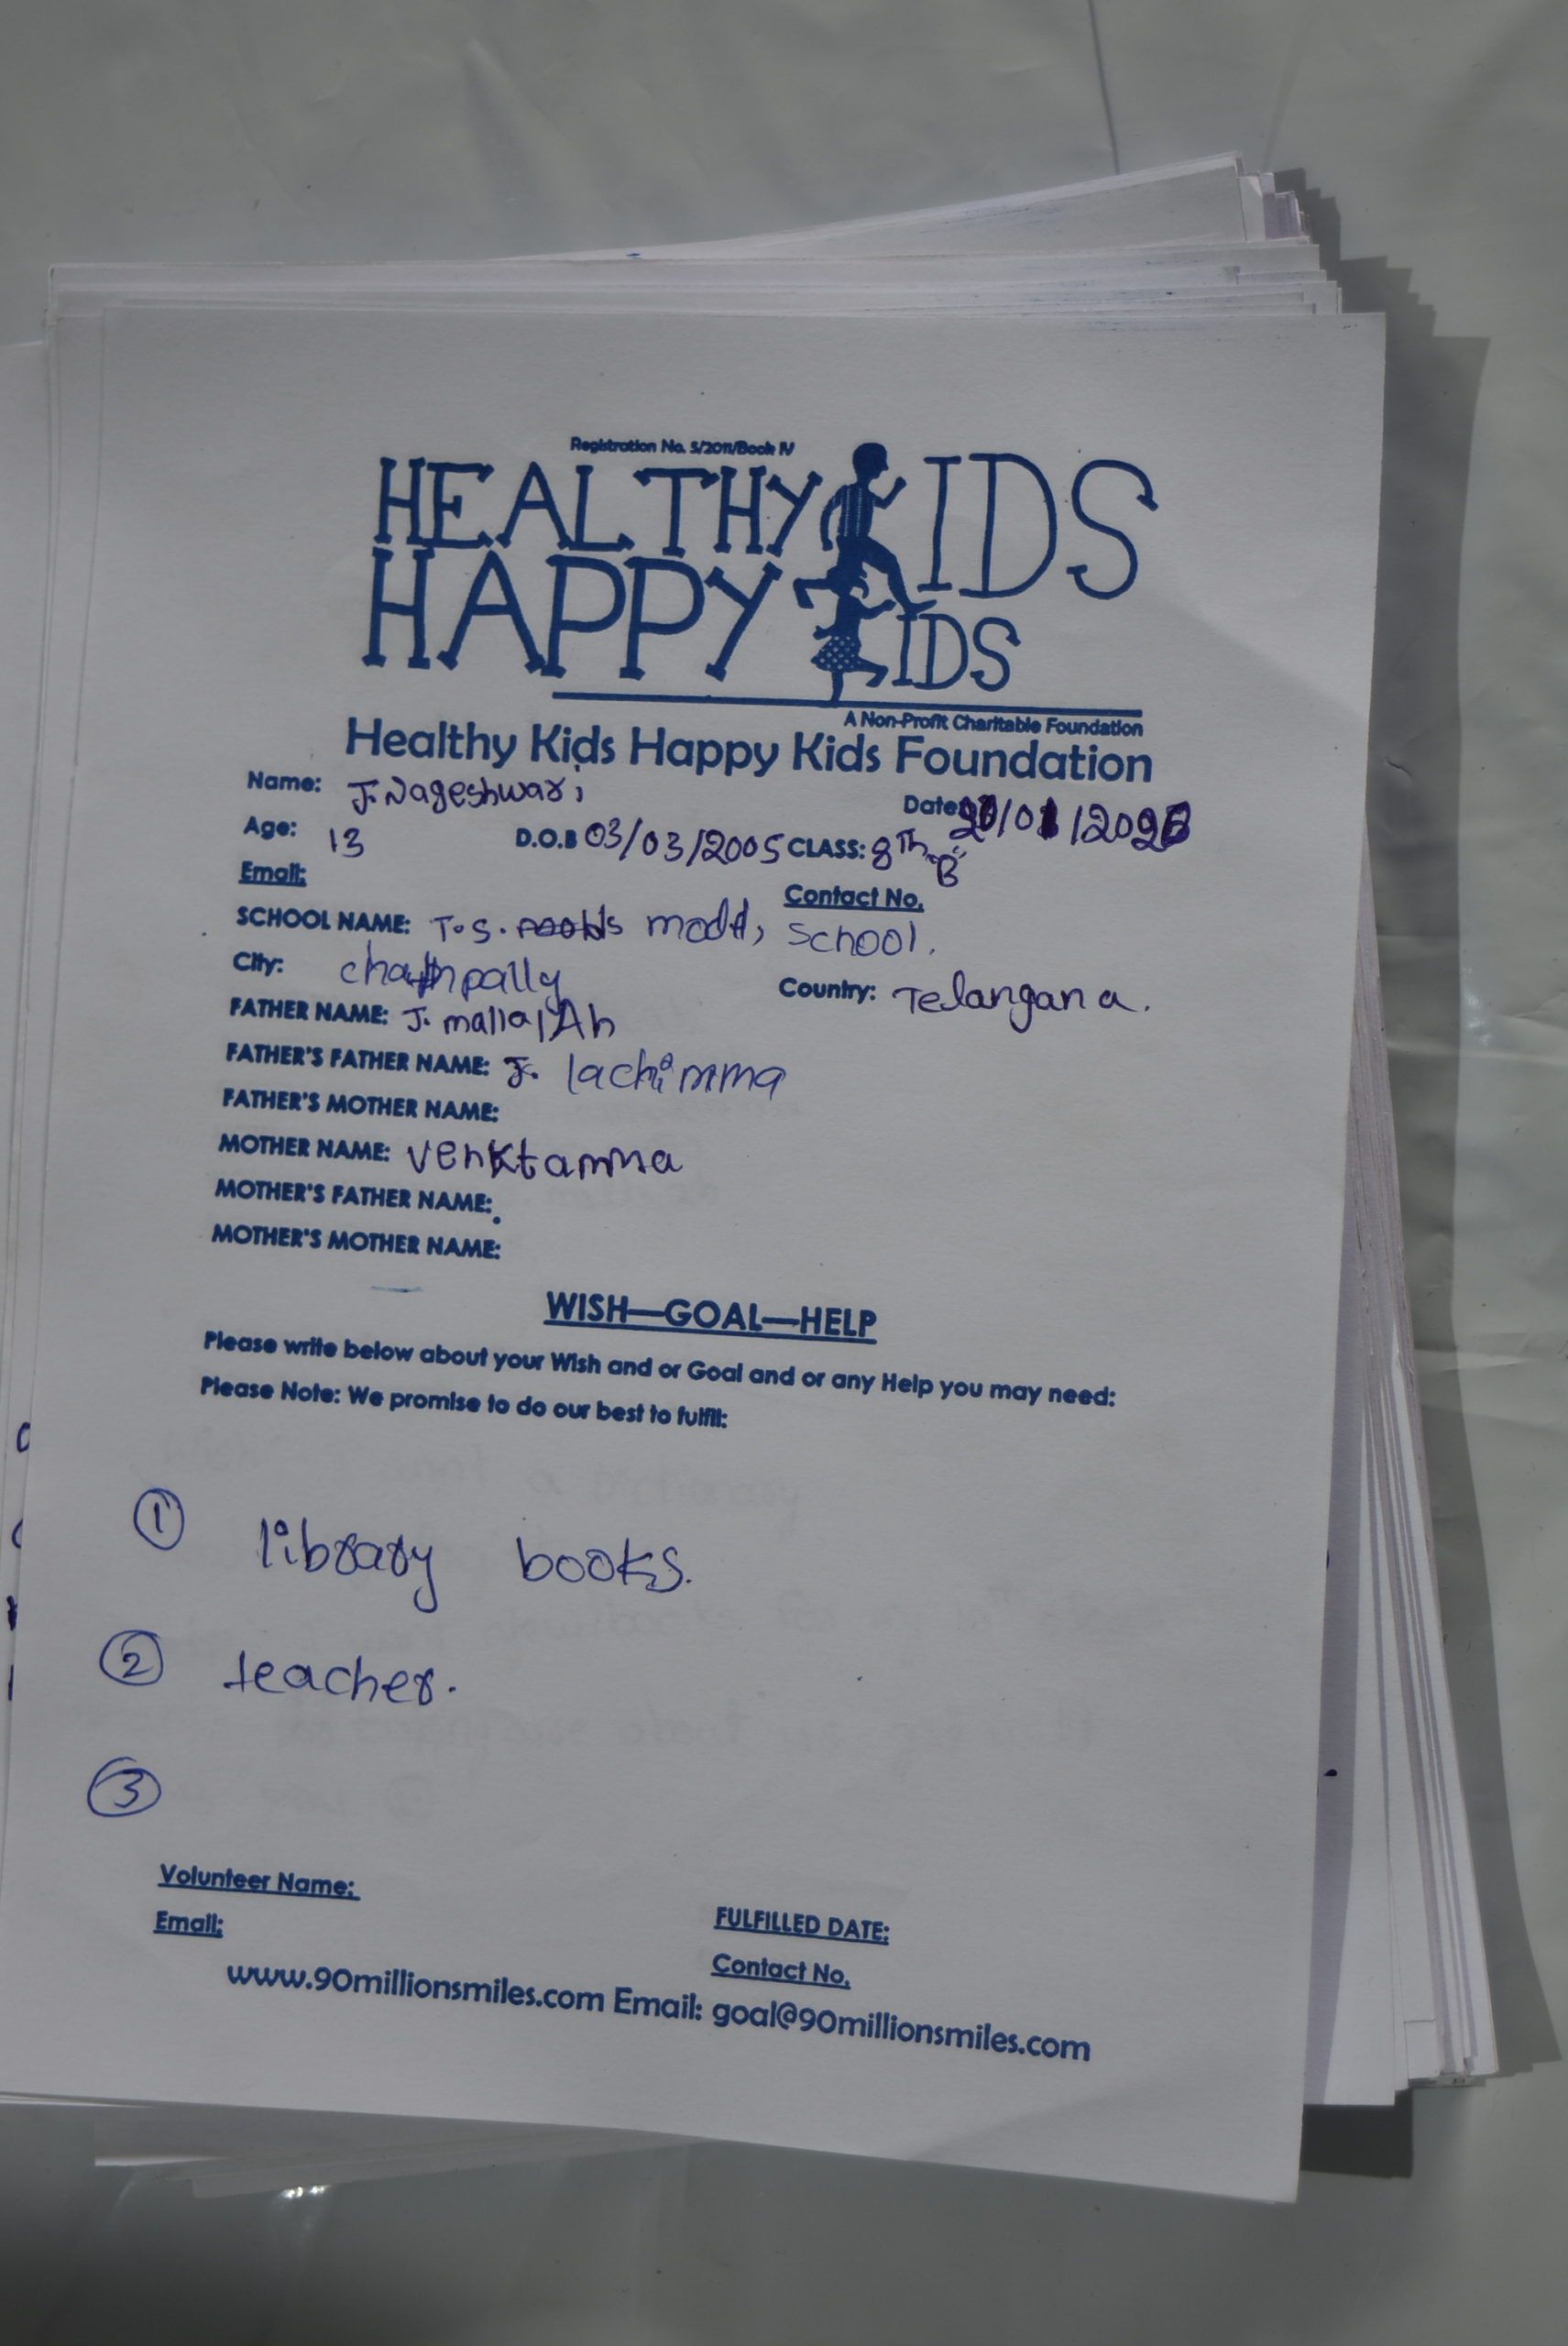 Registration No. 5/2011/Book IV
HEALTHY KIDS
HAPPY KIDS
A Non-Profit Charitable Foundation
Healthy Kids Happy Kids Foundation
Name: J. Nageshwari
Date:
Age: 13 D.O.B 03/03/2005 CLASS: 8th "B"
Email:
Contact No.
SCHOOL NAME: T.S. school.
City:
Country: Telangana.
FATHER NAME: J. mallaiAh
FATHER'S FATHER NAME: J. lachimma
FATHER'S MOTHER NAME:
MOTHER NAME: venktamma
MOTHER'S FATHER NAME:
MOTHER'S MOTHER NAME:
WISH—GOAL—HELP
Please write below about your Wish and or Goal and or any Help you may need:
Please Note: We promise to do our best to fulfill:
1 library books.
2 teacher.
3
Volunteer Name:
FULFILLED DATE:
Email:
Contact No.
www.90millionsmiles.com Email: goal@90millionsmiles.com